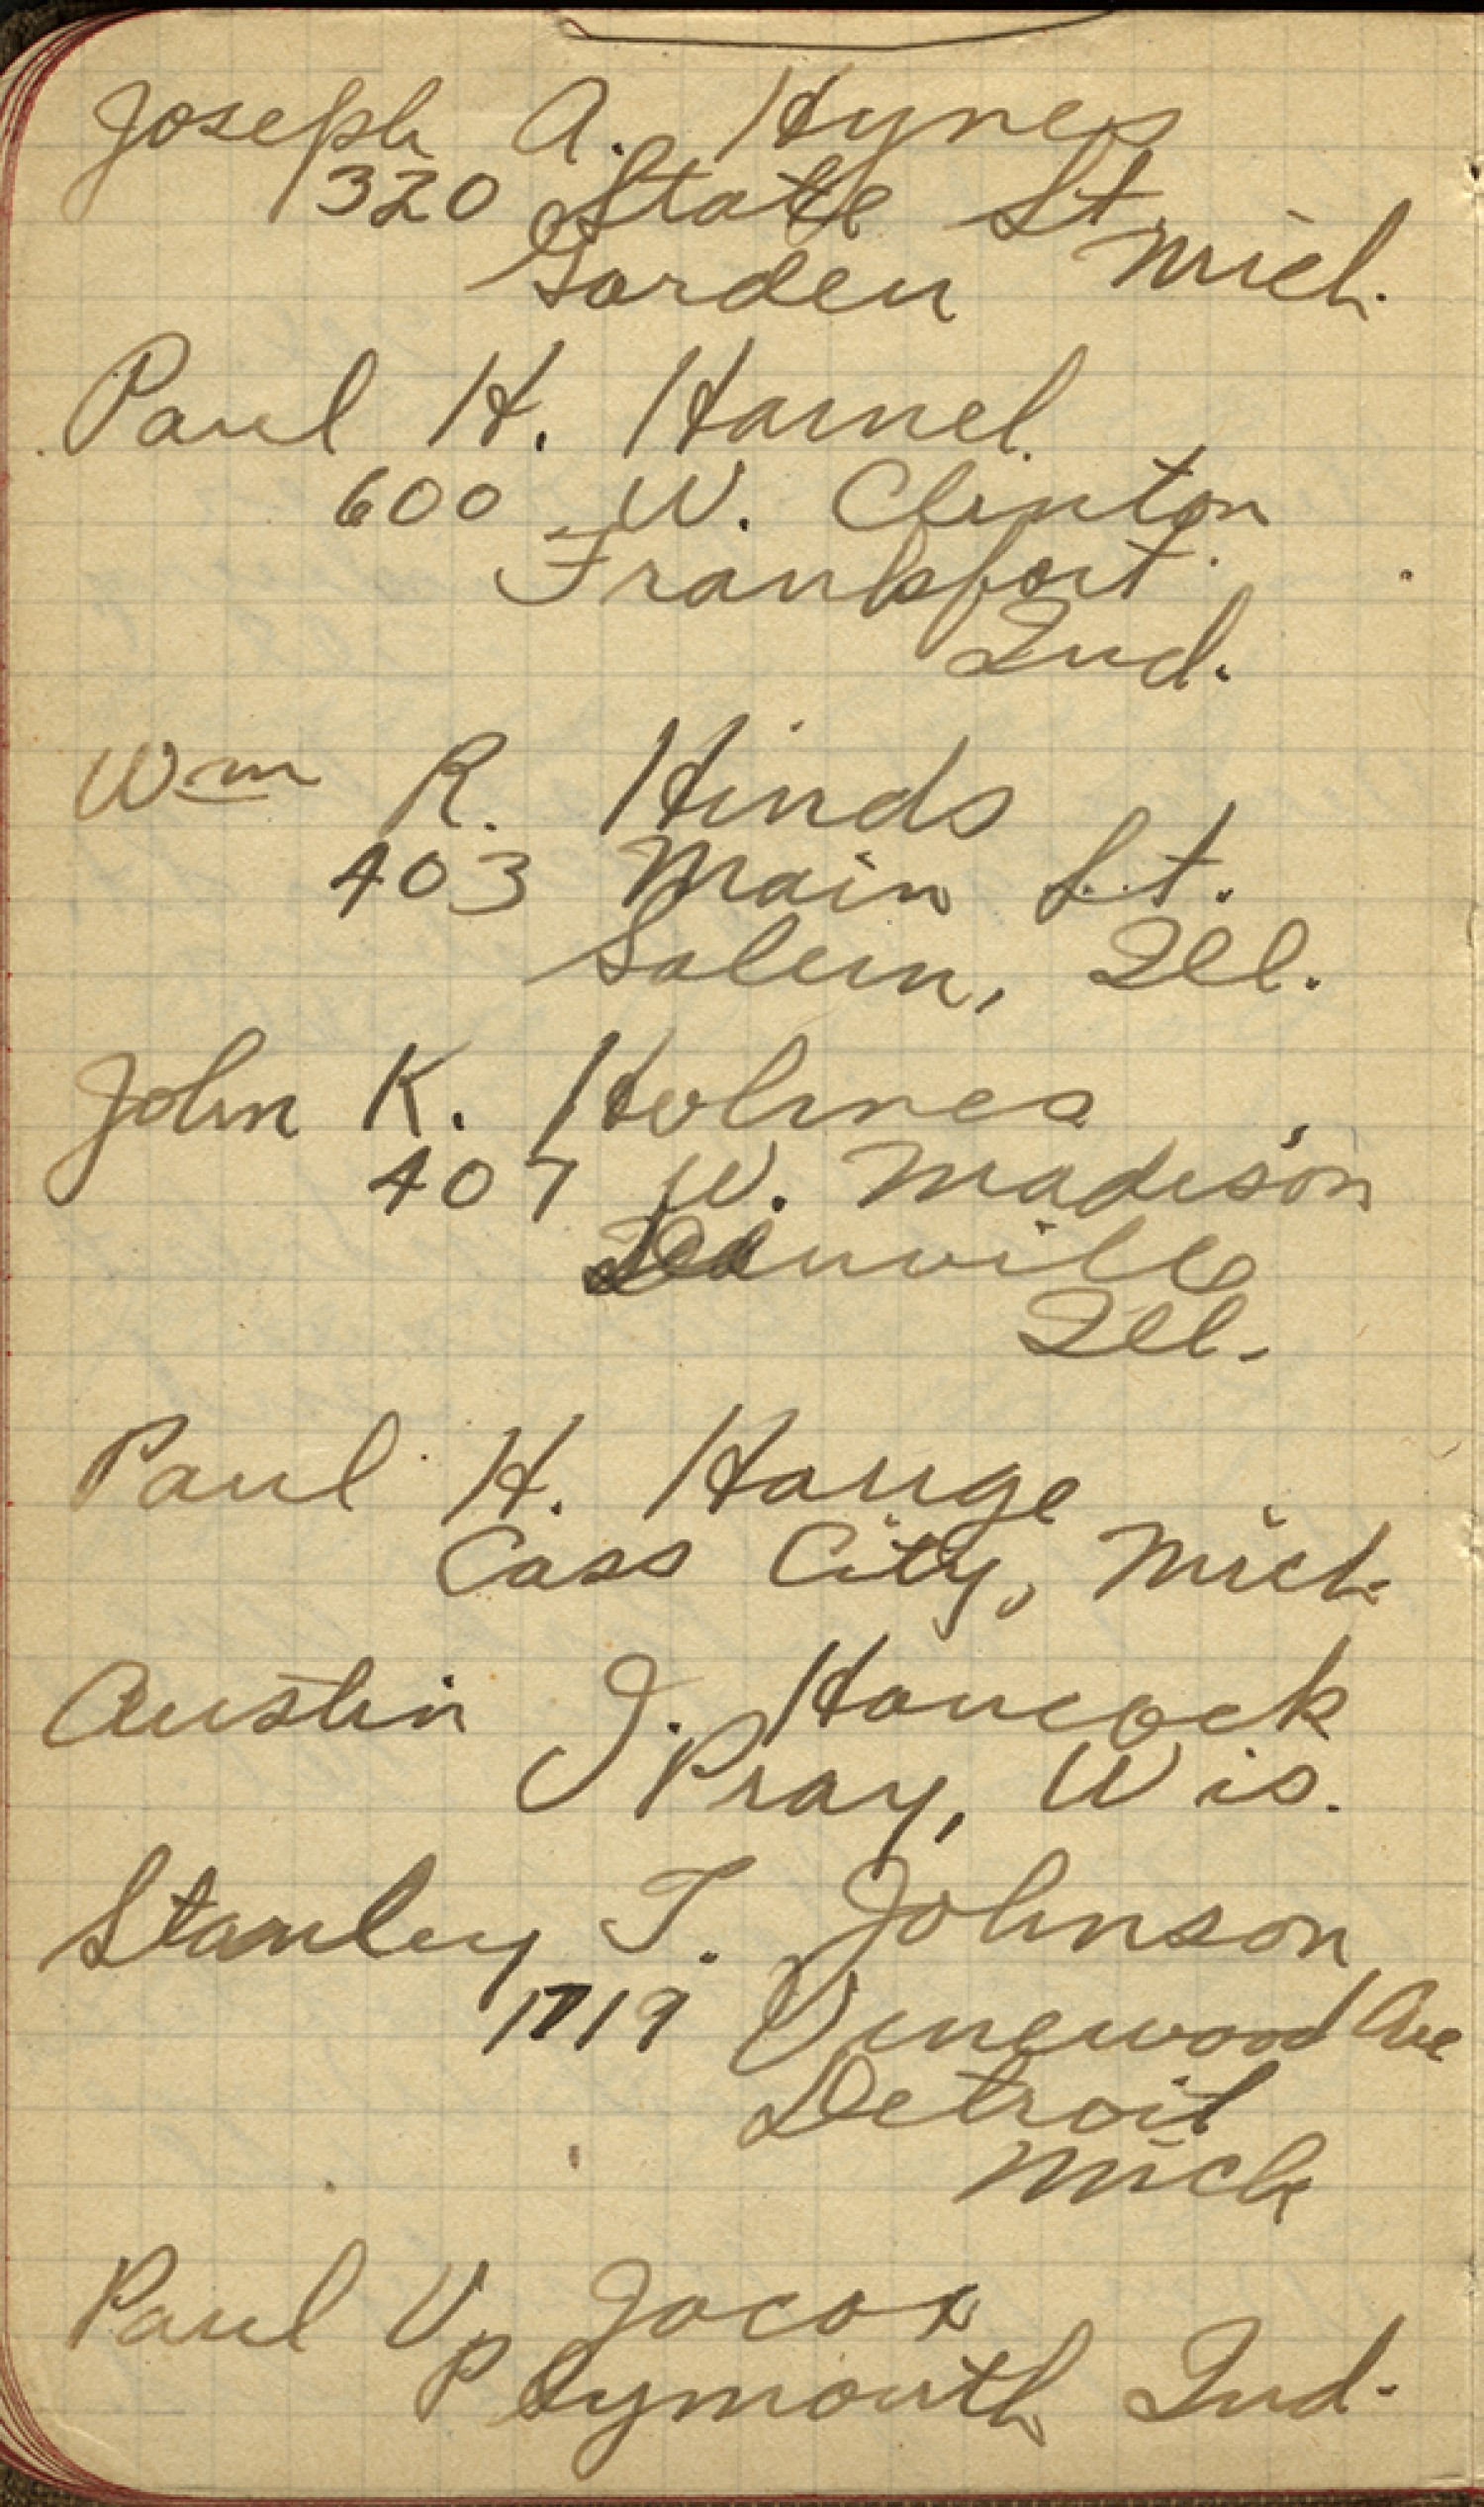 Joseph A. Hynes
1320 State St.
Garden Mich.
Paul H. Hamel
600 W. Clinton
Frankfort
Ind.
Wm R. Hinds
403 Main St.
Salem, Ill.
John K. Holmes
407 W. Madison
Danville
Ill.
Paul H. Hauge
Cass City, Mich.
Austin J. Hancock
Pray, Wis.
Stanley T. Johnson
1719 Vinewood Ave
Detroit
Mich
Paul V. Jacox
Plymouth Ind.